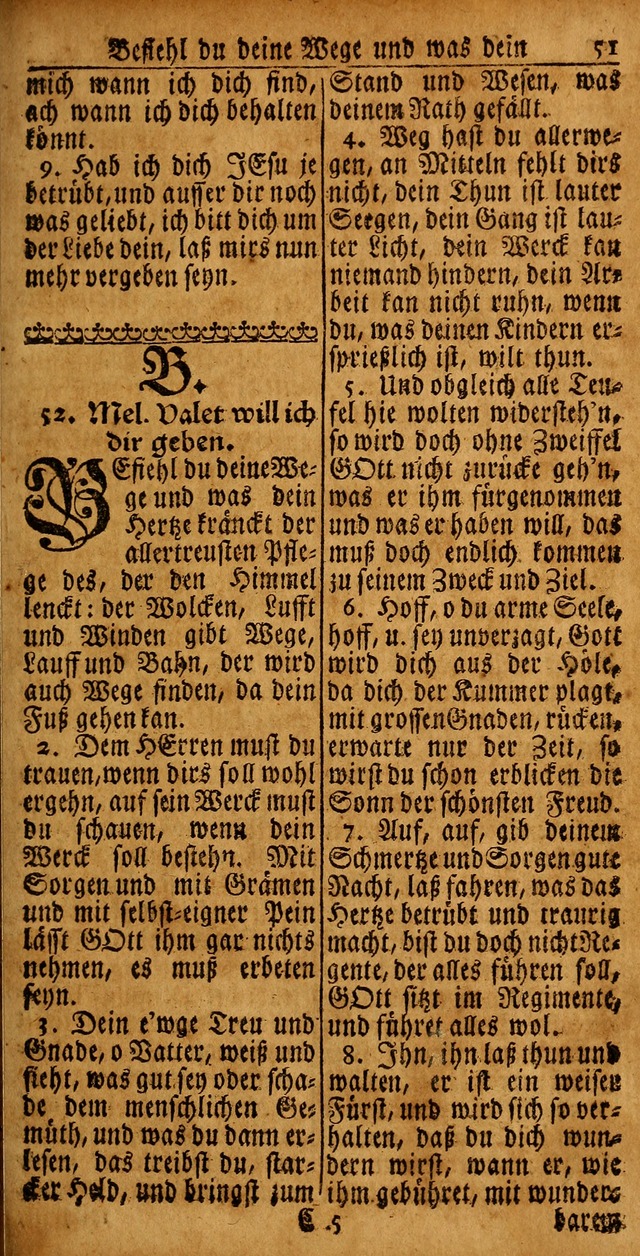 Befiehl du deine Wege und was dein 51
mich wann ich dich find,
ach wann ich dich behalten
könnt.
9. Hab ich dich JEsu je
betrübt, und ausser dir noch
was geliebt, ich bitt dich um
der Liebe dein, laß mirs nun
mehr vergeben seyn.
B.
52. Mel. Valet will ich
dir geben.
BEfiehl du deine We-
ge und was dein
Hertze kränckt der
allertreusten Pfle-
ge des, der den Himmel
lenckt: der Wolcken, Lufft
und Winden gibt Wege,
Lauff und Bahn, der wird
auch Wege finden, da dein
Fuß gehen kan.
2. Dem HErren must du
trauen, wenn dirs soll wohl
ergehn, auf sein Werck must
du schauen, wenn dein
Werck soll bestehn. Mit
Sorgen und mit Grämen
und mit selbst-eigner Pein
lässt GOtt ihm gar nichts
nehmen, es muß erbeten
seyn.
3. Dein e'wge Treu und
Gnade, o Vatter, weiß und
sieht, was gut sey oder scha-
de dem menschlichen Ge-
müth, und was du dann er-
lesen, das treibst du, star-
cker Held, und bringst zum
Stand und Wesen, was
deinem Rath gefällt.
4. Weg hast du allerwe-
gen, an Mitteln fehlt dirs
nicht, dein Thun ist lauter
Seegen, dein Gang ist lau-
ter Licht, dein Werck kan
niemand hindern, dein Ar-
beit kan nicht ruhn, wenn
du, was deinen Kindern er-
sprießlich ist, wilt thun.
5. Und obgleich alle Teu-
fel hie wolten widersteh'n,
so wird doch ohne Zweiffel
GOtt nicht zurücke geh'n,
was er ihm fürgenommen
und was er haben will, das
muß doch endlich kommen
zu seinem Zweck und Ziel.
6. Hoff, o du arme Seele,
hoff, u. sey unverzagt, Gott
wird dich aus der Höle,
da dich der Kummer plagt,
mit grossen Gnaden, rücken,
erwarte nur der Zeit, so
wirst du schon erblicken die
Sonn der schönsten Freud.
7. Auf, auf, gib deinem
Schmertze und Sorgen gute
Nacht, laß fahren, was das
Hertze betrübt und traurig
macht, bist du doch nicht Re-
gente, der alles führen soll,
GOtt sitzt im Regimente,
und führet alles wol.
8. Ihn, ihn laß thun und
walten, er ist ein weiser
Fürst, und wird sich so ver-
halten, daß du dich wun-
dern wirst, wann er, wie
ihm gebühret, mit wunder-
C 5 barem